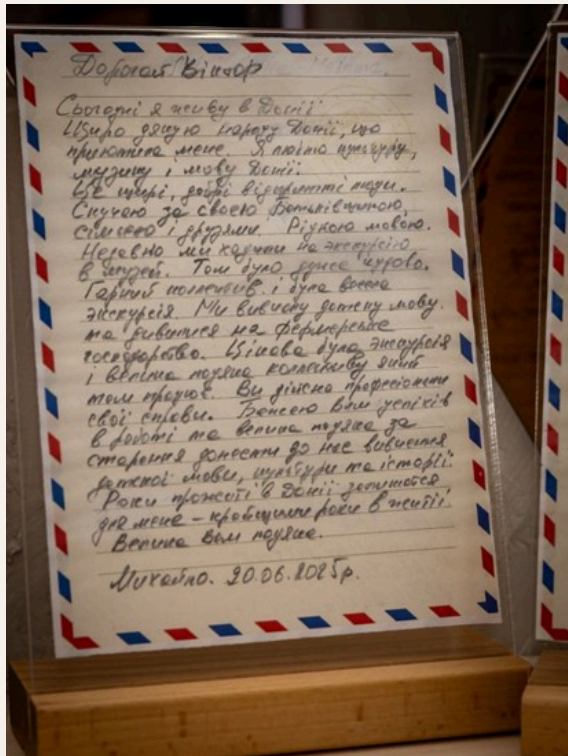 Дорогий Віктор
Сьогодні я живу в Данії
Щиро дякую народу Данії, що
приютила мене. Я люблю культуру,
музику і мову Данії.
Це щирі, добрі відкритті люди.
Скучаю за своєю Батьківчиною,
сімєєю і друзями. Рідною мовою.
Недавно ми хадили на экскурсію
в музей. Там було дуже чудово.
Гарний коллектив і була весела
экскурсія Ми вивчали датску мову.
та дивитися на фермерське
господарство. Цікава була экскурсія
і велика подяка коллективу який
там працює. Ви дійсно професіонали
свої справи. Бажаю Вам успіхів
в роботі та велика подяка за
старення донести до нас вивчення
датскої мови, культури та історії.
Роки прожиті в Данії залишатся
для мене - кращими роки в житті.
Велика Вам подяка.
Михайло. 20.06.2025р.